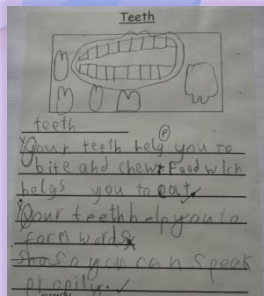 Teeth
teeth
Your teeth help you to
bite and chew Food wich
helps you to eat.
Your teeth help you to
form words
so you can speak
propily.